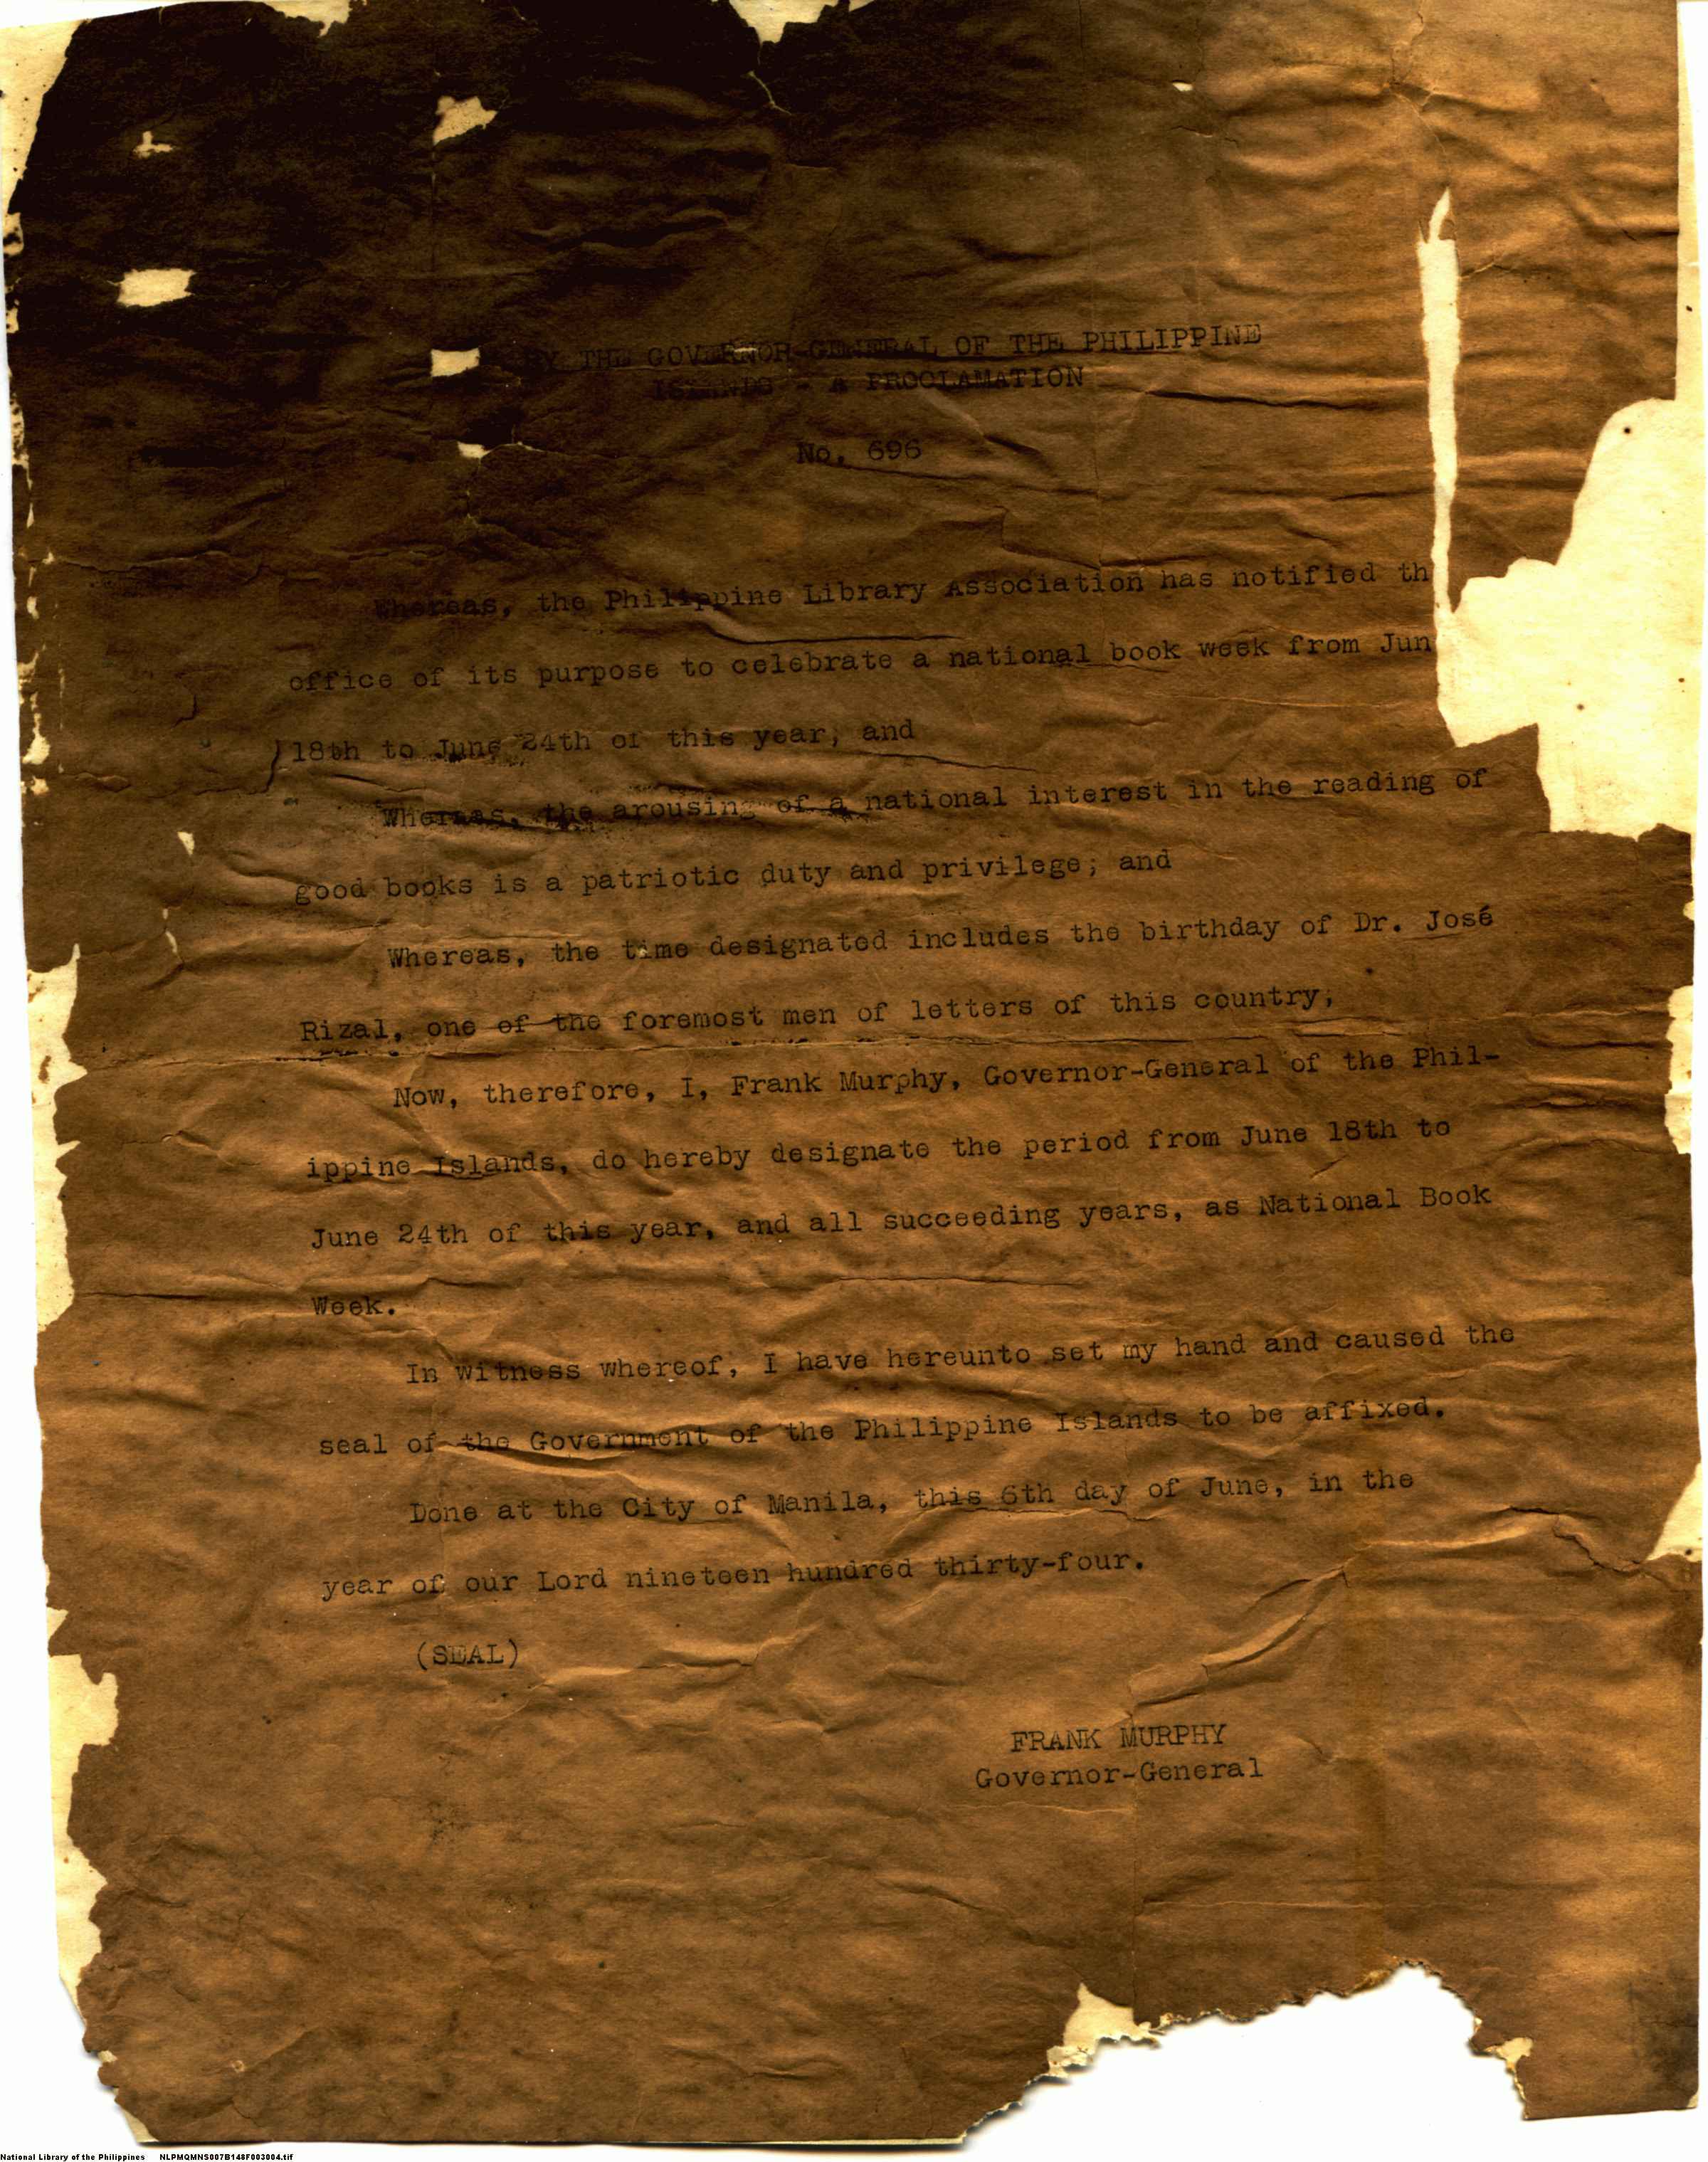 BY THE GOVERNOR-GENERAL OF THE PHILIPPINE
ISLANDS - A PROCLAMATION
No. 696
Whereas, the Philippine Library Association has notified th
office of its purpose to celebrate a national book week from Jun
18th to June 24th of this year; and
Whereas, the arousing of a national interest in the reading of
good books is a patriotic duty and privilege; and
Whereas, the time designated includes the birthday of Dr. José
Rizal, one of the foremost men of letters of this country;
Now, therefore, I, Frank Murphy, Governor-General of the Phil-
ippine Islands, do hereby designate the period from June 18th to
June 24th of this year, and all succeeding years, as National Book
Week.
In witness whereof, I have hereunto set my hand and caused the
seal of the Government of the Philippine Islands to be affixed.
Done at the City of Manila, this 6th day of June, in the
year of our Lord nineteen hundred thirty-four.
(SEAL)
FRANK MURPHY
Governor-General
National Library of the Philippines NLPMQMNS007B148F003004.tif